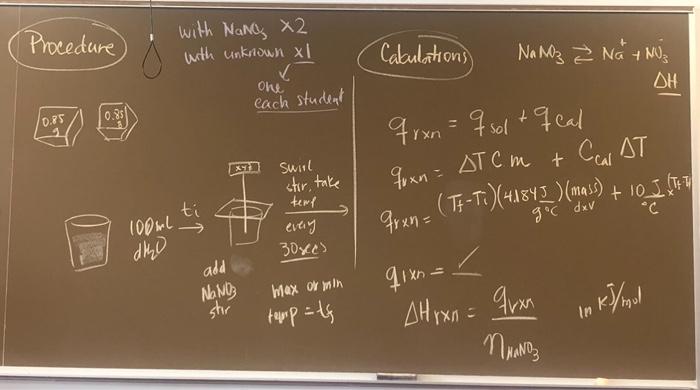 Procedure
with NaNO₃ x2
with unknown x1
one
each student
0.85
g
0.85
g
100ml
dH₂O
ti
add
NaNO₃
stir
swirl
stir, take
temp
every
30secs
max or min
temp = tf
Calculations
NaNO₃ ⇌ Na⁺ + NO₃⁻
ΔH
qrxn = qsol + qcal
qrxn = ΔT C m + Ccal ΔT
qrxn = (Tf-Ti)(4.184 J/g°C)(mass)(dxV) + 10 J/°C x(Tf-Ti)
qrxn = ✓
ΔHrxn = qrxn/nNaNO₃ in kJ/mol